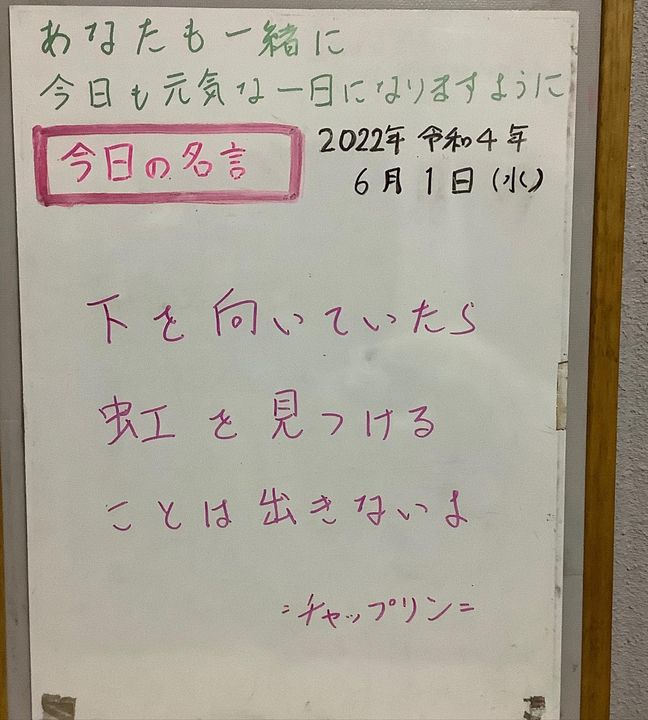 あなたも一緒に
今日も元気な一日になりますように
今日の名言
2022年 令和4年
6月1日(水)
下を向いていたら
虹を見つける
ことは出きないよ
=チャップリン=